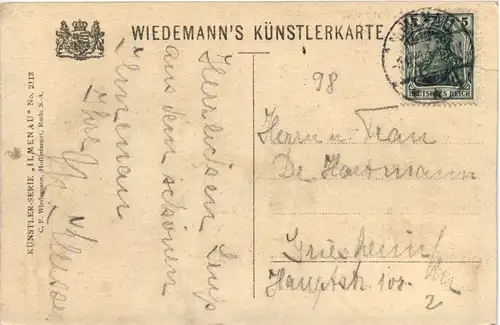 WIEDEMANN'S KÜNSTLERKARTE
KÜNSTLER-SERIE „ILMENAU" No. 2113
C. F. Wiedemann, Hofbuchdr., Rud. S. A.
Herzlichen Gruß
aus dem schönen
Ilmenau
Ihre
5
DEUTSCHES REICH
98
Herrn u. Frau
Dr Hartmann
Griesheim
Hauptstr 105
2